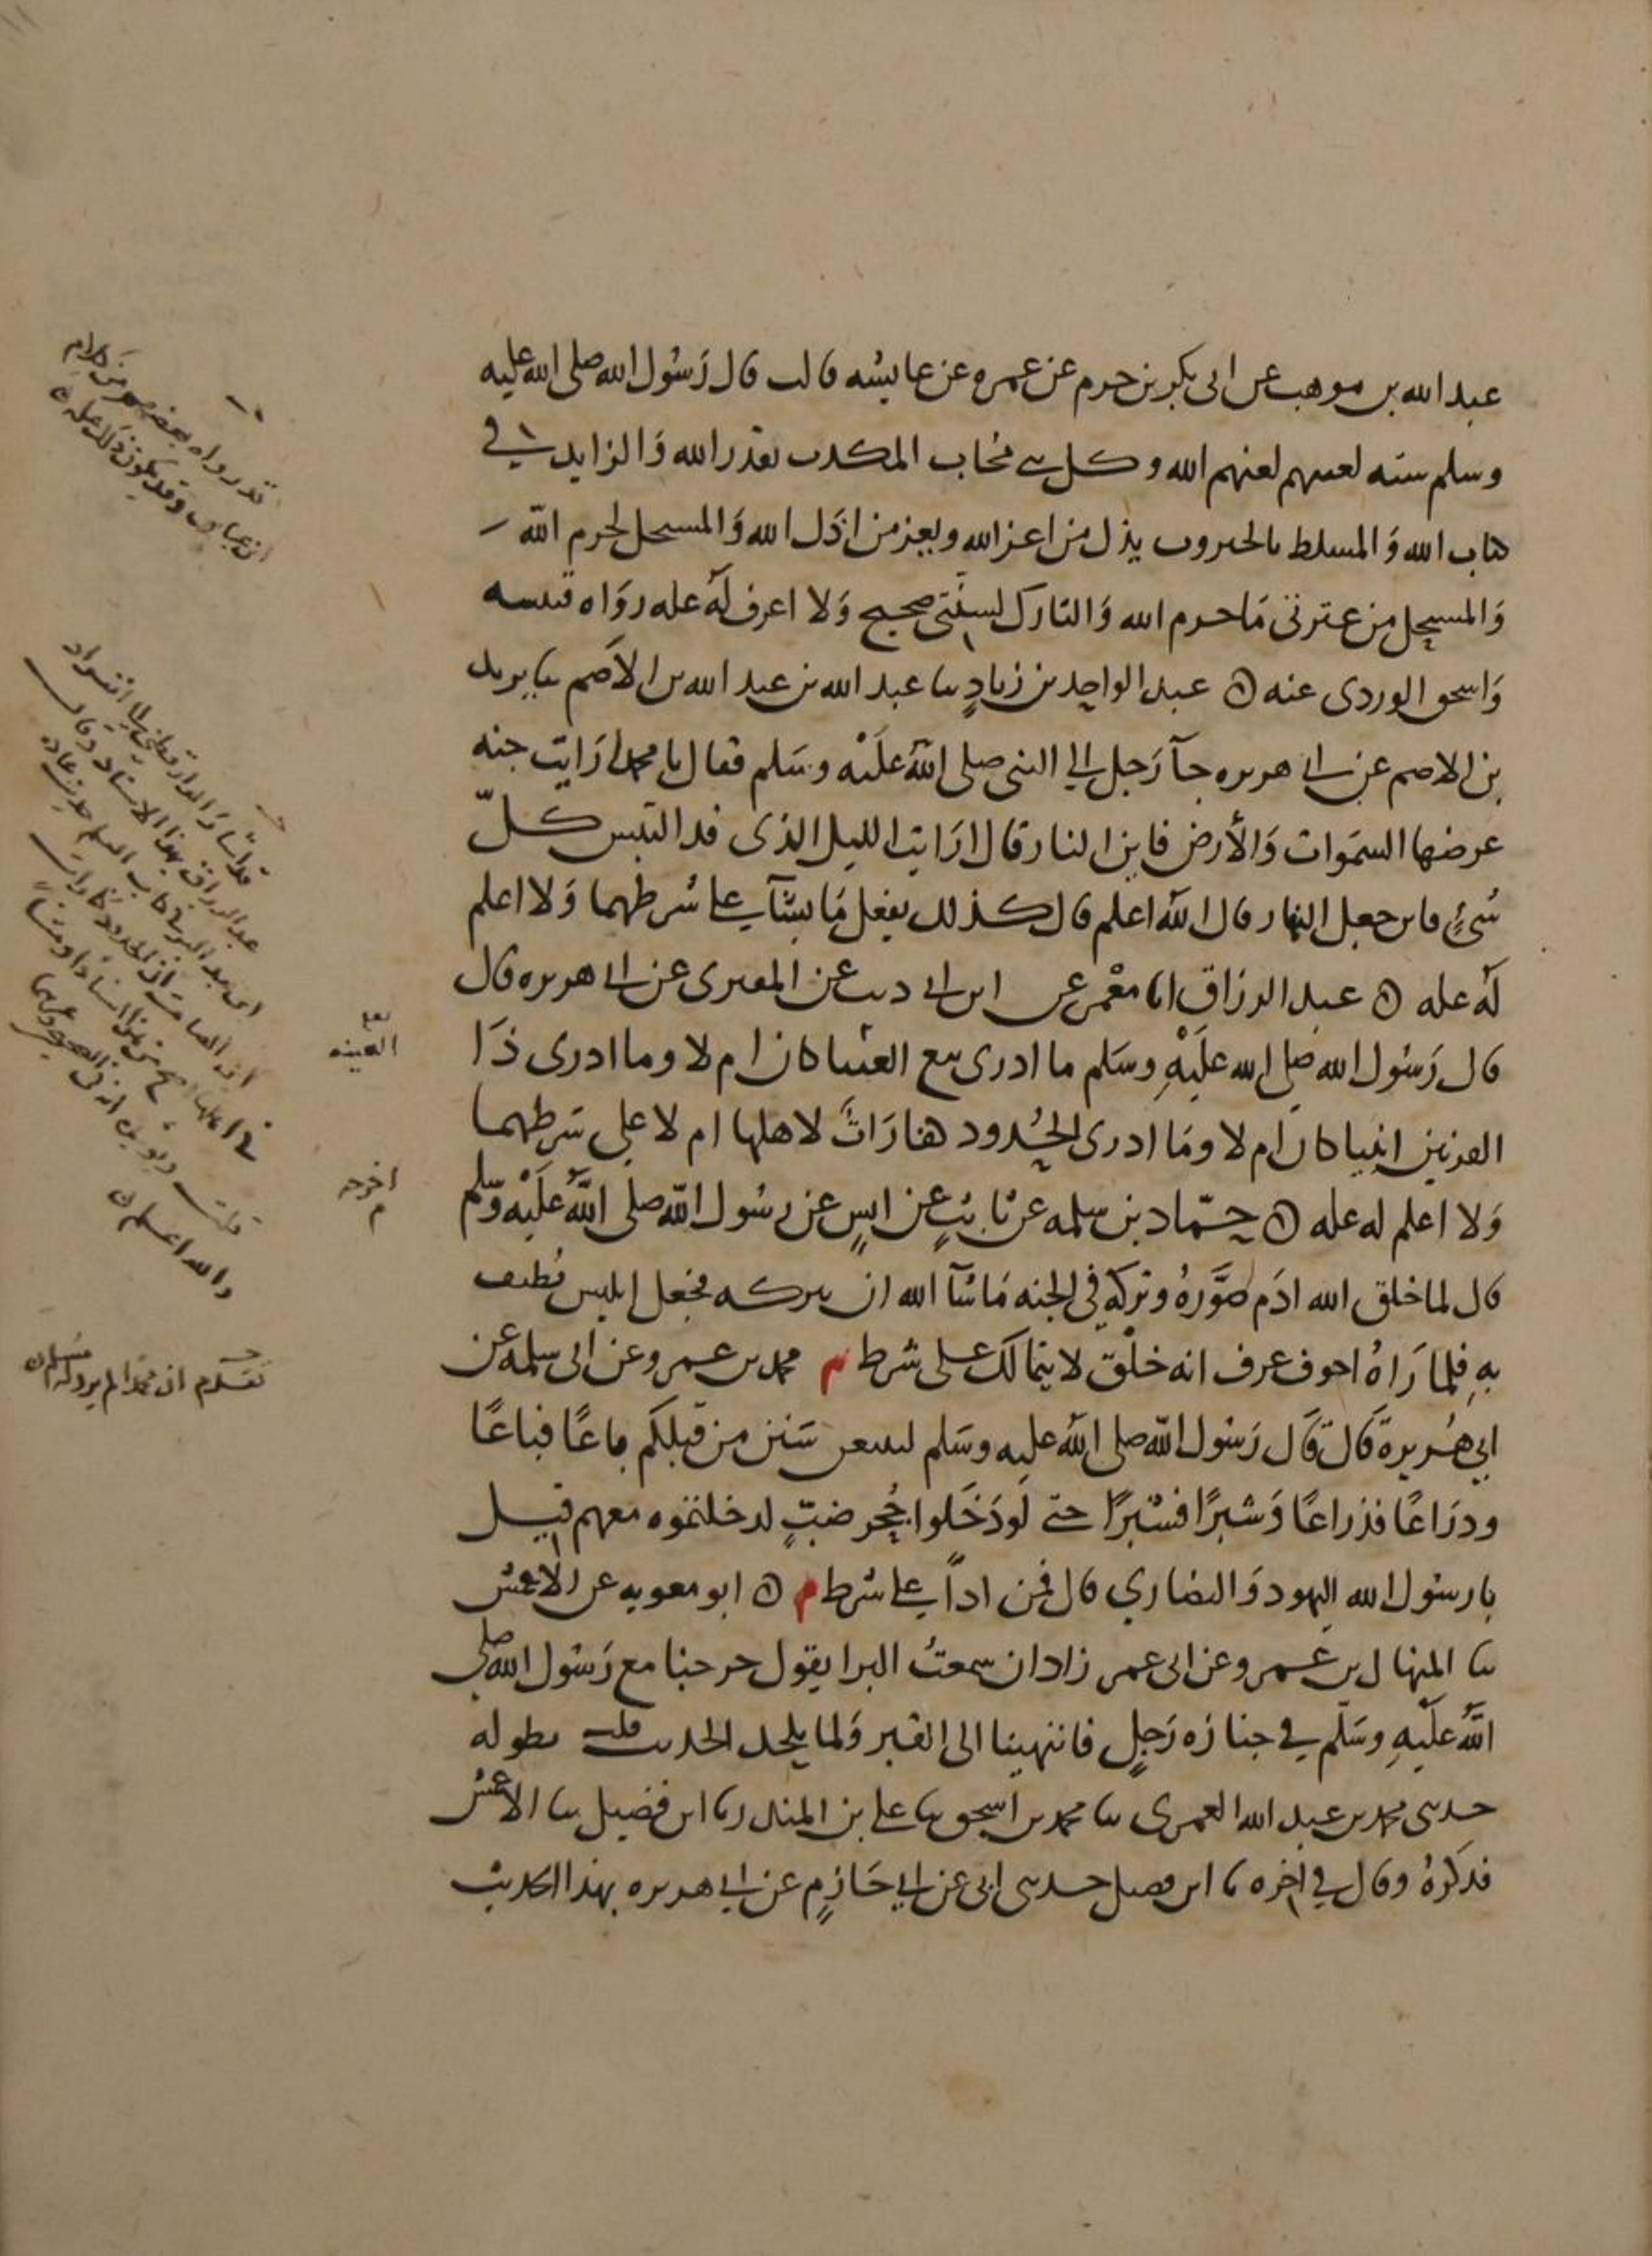 عبد الله بن موهب عن ابى بكر بن حزم عن عمره عن عايشه قالت قال رَسُول الله صلى الله عليه
وسلم سته لعنتهم لعنهم الله وكل نبى مُجاب المكذب بقدر الله وَالزايد في
كتاب الله وَالمسلط بالجبروت يذل من اعز الله ويعز من اذَل الله وَالمستحل لحرم الله
وَالمستحل من عترتى مَا حرم الله وَالتارك لسنتى صحيح وَلا اعرف لهُ عله روَاه قتيبه
وَاسحق الفروى عنه ه عبد الواحِد بن زيادٍ ثنا عبد الله بن عبد الله بن الاصم ثنا يزيد
بن الاصم عن ابي هريره جآ رَجل الي النبى صلى اللهُ علَيْه وسَلم فقال يا محمد ارَايت جنه
عرضها السمَوات وَالأرض فاين النار قال ارَايت الليل الذى قد التبس كلّ
شىءٍ فاين جعل النهار قال اللهُ اعلم قال كذلك يفعل مَا يشَآ على شرطهما وَلا اعلم
لهُ عله ه عبد الرزاق انا معْمر عن ابن ابي ذيب عن المقبرى عن ابي هريره قال
قال رَسُول الله صلى الله علَيْهِ وسَلم ما ادرى تبع العنبا كان ام لا وما ادرى ذَا
القرنين انبيا كان ام لا ومَا ادرى الحُدود هفارَاتٌ لاهلها ام لا على شَرطهما
وَلا اعلم له عله ه حمّاد بن سلمه عن ثابتٍ عن انسٍ عن رسُول اللّه صلى اللهُ علَيْه وسَلم
قال لما خلق الله ادَم صَوَّرهُ وتركهُ فى الجنه مَاشآ الله ان يتركه فجعل ابليس يُطيف
بهِ فلما رَاهُ اجوف عرف انه خلْق لا يتمالك على شرط م محمد بن عمرو عن ابى سلمه عن
ابي هُريرة قال قَال رَسُول اللّه صلى اللهُ عليه وسَلم لتتبعن سَنن من قبلكم باعًا فباعًا
وذرَاعًا فذراعًا وَشبرًا فشبرًا حتى لَو دَخَلوا جُحر ضبٍّ لدخلتموه معهم قيل
يا رسُول الله اليهود وَالنصاري قال فمن اذاً على شرط م ه ابو معويه عن الاعمش
ثنا المنهال بن عمرو عن ابى عمر زاذان سمعتُ البرا يقول خرجنا مع رَسُول الله صلى
اللهُ علَيْهِ وسَلّم في جنازه رَجلٍ فانتهينا الى القبر وَلما يلحد الحديث قلت بطوله
حدثنى محمد بن عبد الله العمرى ثنا محمد بن اسحق ثنا على بن المنذر ثنا ابن فضيل ثنا الاعمش
فذكرهُ وقال في اخره ثنا ابن فضيل حدثنى ابى عن ابي حَازمٍ عن ابي هريره بهذا الحديث
قد رواه بعضهم من كلام
ابن عباس وقد يكون ذلك عله ه
لعله
العينه
اخرجه
م
والله اعلم
تقدم ان محمدا لم يرو له مسلم